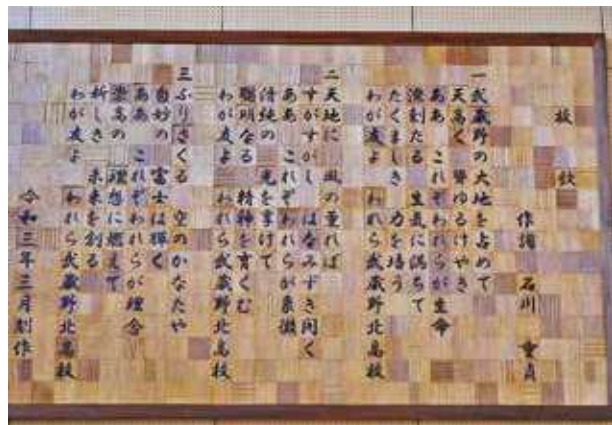 校歌
作詞 石川 重貞
一 武蔵野の大地を占めて
天高く 聳ゆるけやき
ああ これぞわれらが生命
溌剌たる 生気に満ちて
たくましき 力を培う
わが友よ われら武蔵野北高校
二 天地に 風の薫れば
すがすがし はなみずき開く
ああ これぞわれらが象徴
清純の 光を掌けて
聡明なる 精神を育くむ
わが友よ われら武蔵野北高校
三 ふりさくる 空のかなたや
白妙の 富士は輝く
ああ これぞわれらが理念
崇高の 理想に燃えて
新しき 未来を創る
わが友よ われら武蔵野北高校
令和三年三月制作